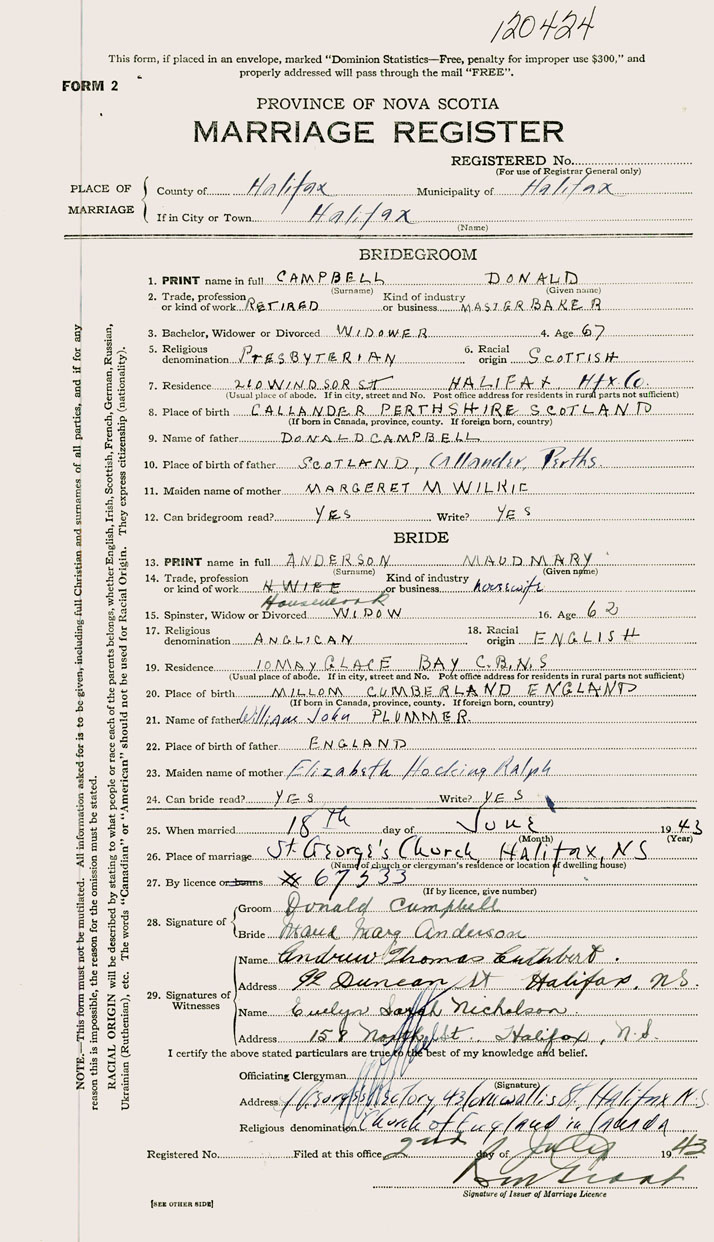 120424
This form, if placed in an envelope, marked "Dominion Statistics—Free, penalty for improper use $300," and
properly addressed will pass through the mail "FREE".
FORM 2
PROVINCE OF NOVA SCOTIA
MARRIAGE REGISTER
REGISTERED No.
(For use of Registrar General only)
PLACE OF MARRIAGE
County of Halifax Municipality of Halifax
If in City or Town Halifax
(Name)
BRIDEGROOM
1. PRINT name in full CAMPBELL DONALD
(Surname) (Given name)
2. Trade, profession or kind of work RETIRED Kind of industry or business MASTER BAKER
3. Bachelor, Widower or Divorced WIDOWER 4. Age 67
5. Religious denomination PRESBYTERIAN 6. Racial origin SCOTTISH
7. Residence 210 WINDSOR ST HALIFAX Hfx Co.
(Usual place of abode. If in city, street and No. Post office address for residents in rural parts not sufficient)
8. Place of birth CALLANDER PERTHSHIRE SCOTLAND
(If born in Canada, province, county. If foreign born, country)
9. Name of father DONALD CAMPBELL
10. Place of birth of father SCOTLAND, Callander, Perths.
11. Maiden name of mother MARGERET M WILKIE
12. Can bridegroom read? YES Write? YES
BRIDE
13. PRINT name in full ANDERSON MAUD MARY
(Surname) (Given name)
14. Trade, profession or kind of work H WIFE Kind of industry or business housewife
Housework
15. Spinster, Widow or Divorced WIDOW 16. Age 62
17. Religious denomination ANGLICAN 18. Racial origin ENGLISH
19. Residence 10 MAY GLACE BAY C.B.N.S
(Usual place of abode. If in city, street and No. Post office address for residents in rural parts not sufficient)
20. Place of birth MILLOM CUMBERLAND ENGLAND
(If born in Canada, province, county. If foreign born, country)
21. Name of father William John PLUMMER
22. Place of birth of father ENGLAND
23. Maiden name of mother Elizabeth Hocking Ralph
24. Can bride read? YES Write? YES
25. When married 18th day of June 1943
(Month) (Year)
26. Place of marriage St George's Church Halifax, NS
(Name of church or clergyman's residence or location of dwelling house)
27. By licence or banns 67333
(If by licence, give number)
28. Signature of
Groom Donald Campbell
Bride Maud Mary Anderson
29. Signatures of Witnesses
Name Andrew Thomas Cuthbert.
Address 92 Duncan St Halifax, N.S.
Name Evelyn Sarah Nicholson.
Address 158 North St. Halifax, N.S.
I certify the above stated particulars are true to the best of my knowledge and belief.
Officiating Clergyman
(Signature)
Address St Georges Rectory, 43 Cornwallis St, Halifax N.S.
Religious denomination Church of England in Canada
Registered No. Filed at this office 2nd day of July 1943
Signature of Issuer of Marriage Licence
[SEE OTHER SIDE]
NOTE.—This form must not be mutilated. All information asked for is to be given, including full Christian and surnames of all parties, and if for any
reason this is impossible, the reason for the omission must be stated.
RACIAL ORIGIN will be described by stating to what people or race each of the parents belongs, whether English, Irish, Scottish, French, German, Russian,
Ukrainian (Ruthenian), etc. The words "Canadian" or "American" should not be used for Racial Origin. They express citizenship (nationality).